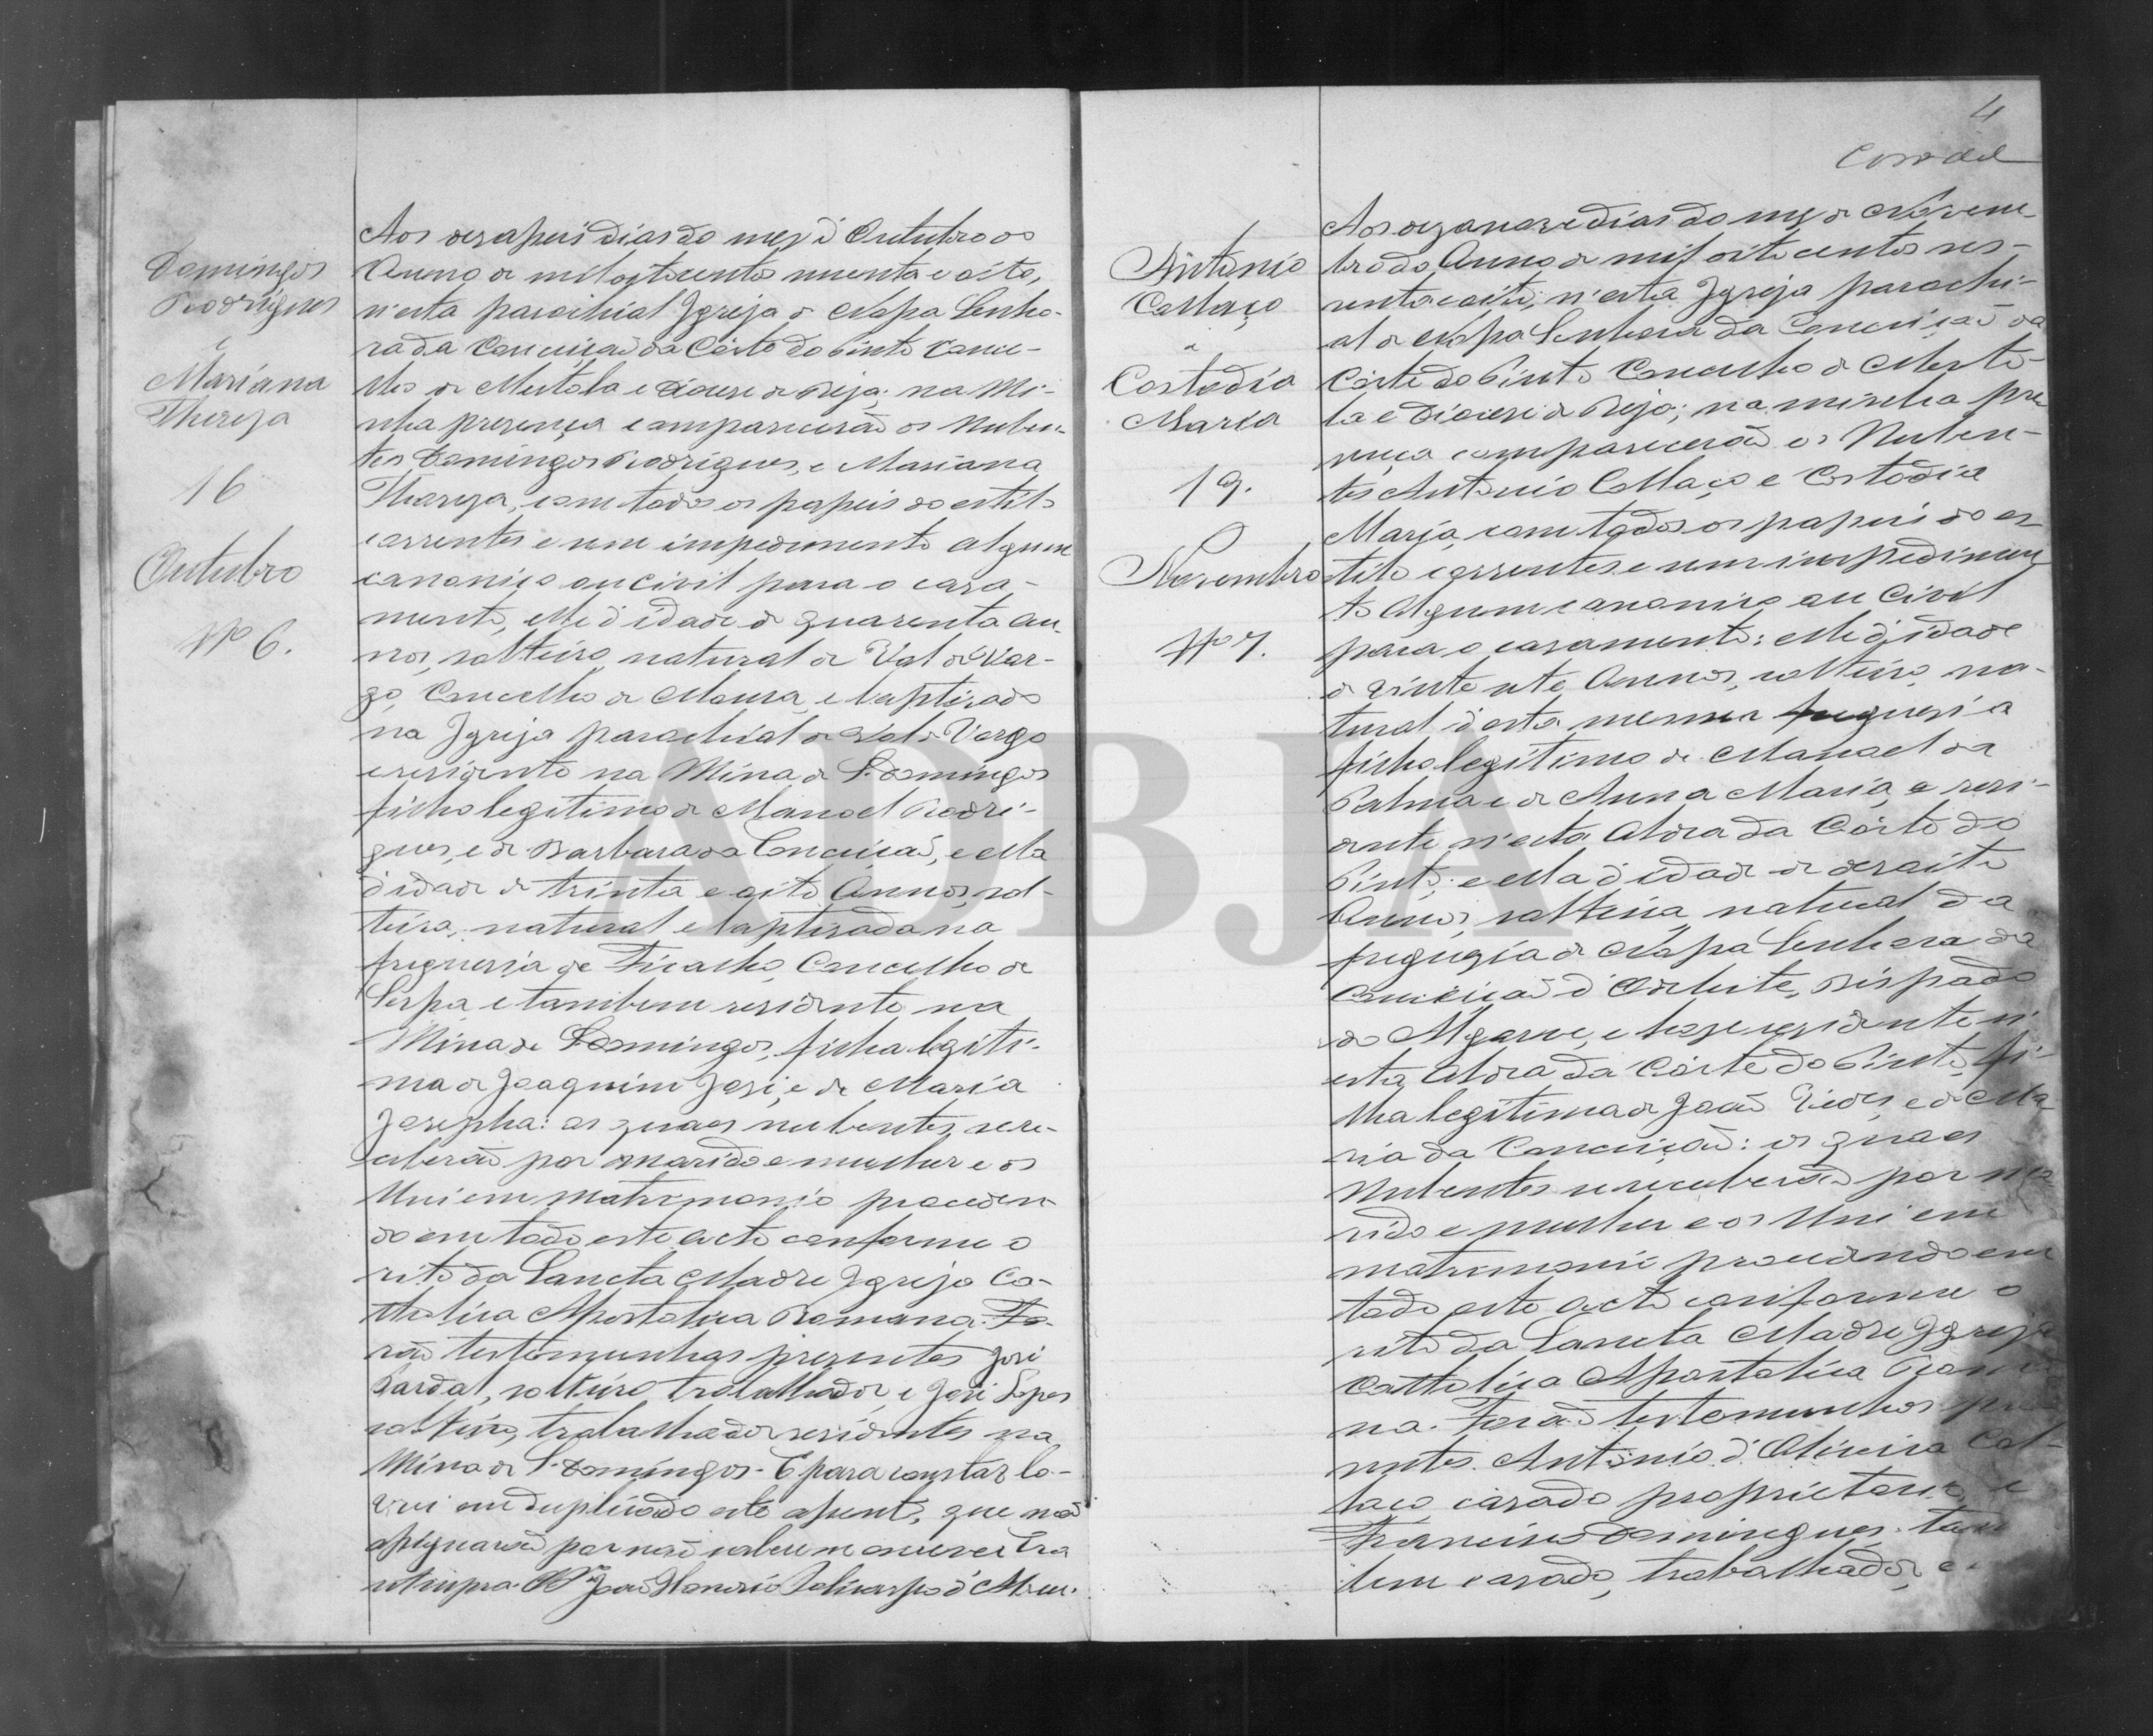 Domingos
Rodrigues
e
Mariana
Thereza
16
Outubro
Nº 6.
Aos desaseis dias do mez d'Outubro do
Anno de mil oitocentos noventa e oito,
n'esta parochial Igreja de Nossa Senho-
ra da Conceição da Côrte do Pinto Conce-
lho de Mertola e diocese de Beja; na Mi-
nha presença comparecerão os Nuben-
tes Domingos Rodrigues, e Mariana
Thereza, com todos os papeis do estilo
correntes e sem impedimento algum
canonico ou civil para o casa-
mento, elle d'idade de quarenta an-
nos, solteiro, natural de Val de Var-
go, Concelho de Moura, e baptisado
na Igreja parochial de Val de Vargo
e residente na Mina de S. Domingos
filho legitimo de Manoel Rodri-
gues, e de Barbara da Conceição, e ella
d'idade de trinta e oito Annos, sol-
teira, natural e baptisada na
freguesia de Ficalho, Concelho de
Serpa e tambem residente na
Mina de S. Domingos, filha legiti-
ma de Joaquim José, e de Maria
Josepha: os quaes nubentes se re-
ceberão por marido e mulher e os
Uni em matrimonio proceden-
do em todo este acto conforme o
rito da Sancta Madre Igreja Ca-
tholica Apostolica Romana. Fo-
rão testemunhas presentes José
Pardal, solteiro, trabalhador, e José Lopes
solteiro, trabalhador residentes na
Mina de S. Domingos. E para constar la-
vrei em duplicado este assento, que não
assignarão por não saberem escrever Era
ut supra. O Pe. João Honorio Policarpo d'Abreu.
4
Antonio
Collaço
e
Costodia
Maria
19.
Novembro
Nº 7.
Aos dezanove dias do mez de Novem-
bro do Anno de mil oitocentos no-
venta e oito, n'esta Igreja parochi-
al de Nossa Senhora da Conceição da
Côrte do Pinto Concelho de Merto-
la e Diocese de Beja; na minha pre-
sença comparecerão os Nuben-
tes Antonio Collaço e Costodia
Maria, com todos os papeis do es-
tilo correntes e sem impedimen-
to Algum canonico ou Civil
para o casamento: elle d'idade
de vinte sete Annos, solteiro, na-
tural d'esta mesma freguesia
filho legitimo de Manoel da
Palma e de Anna Maria, e resi-
dente n'esta Aldea da Côrte do
Pinto; e ella d'idade de desoito
Annos, solteira, natural da
freguezia de Nossa Senhora da
Conceição d'Odeleite, Bispado
do Algarve, e hoje residente n'-
esta Aldea da Côrte do Pinto, fi-
lha legitima de João Viegas, e de Ma-
ria da Conceição: os quaes
Nubentes se receberão por ma-
rido e mulher e os Uni em
matrimonio procedendo em
todo este acto conforme o
rito da Sancta Madre Igreja
Catholica Apostolica Roma-
na. Forão testemunhas pre-
sentes Antonio d'Oliveira Col-
laço, casado proprietario, e
Francisco Domingues, tam-
bem casado, trabalhador, e
ADBJA